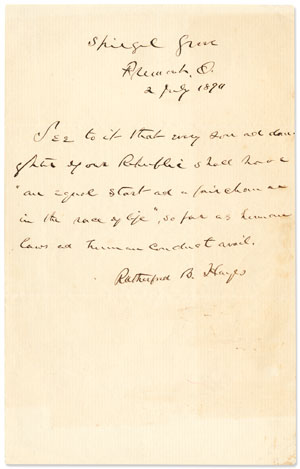 Spiegel Grove
Fremont, O.
2 July 1890
See to it that every son and dau
ghter of our Republic shall have
"an equal start and a fair chance
in the race of life", so far as human
laws and human conduct avail.
Rutherford B. Hayes